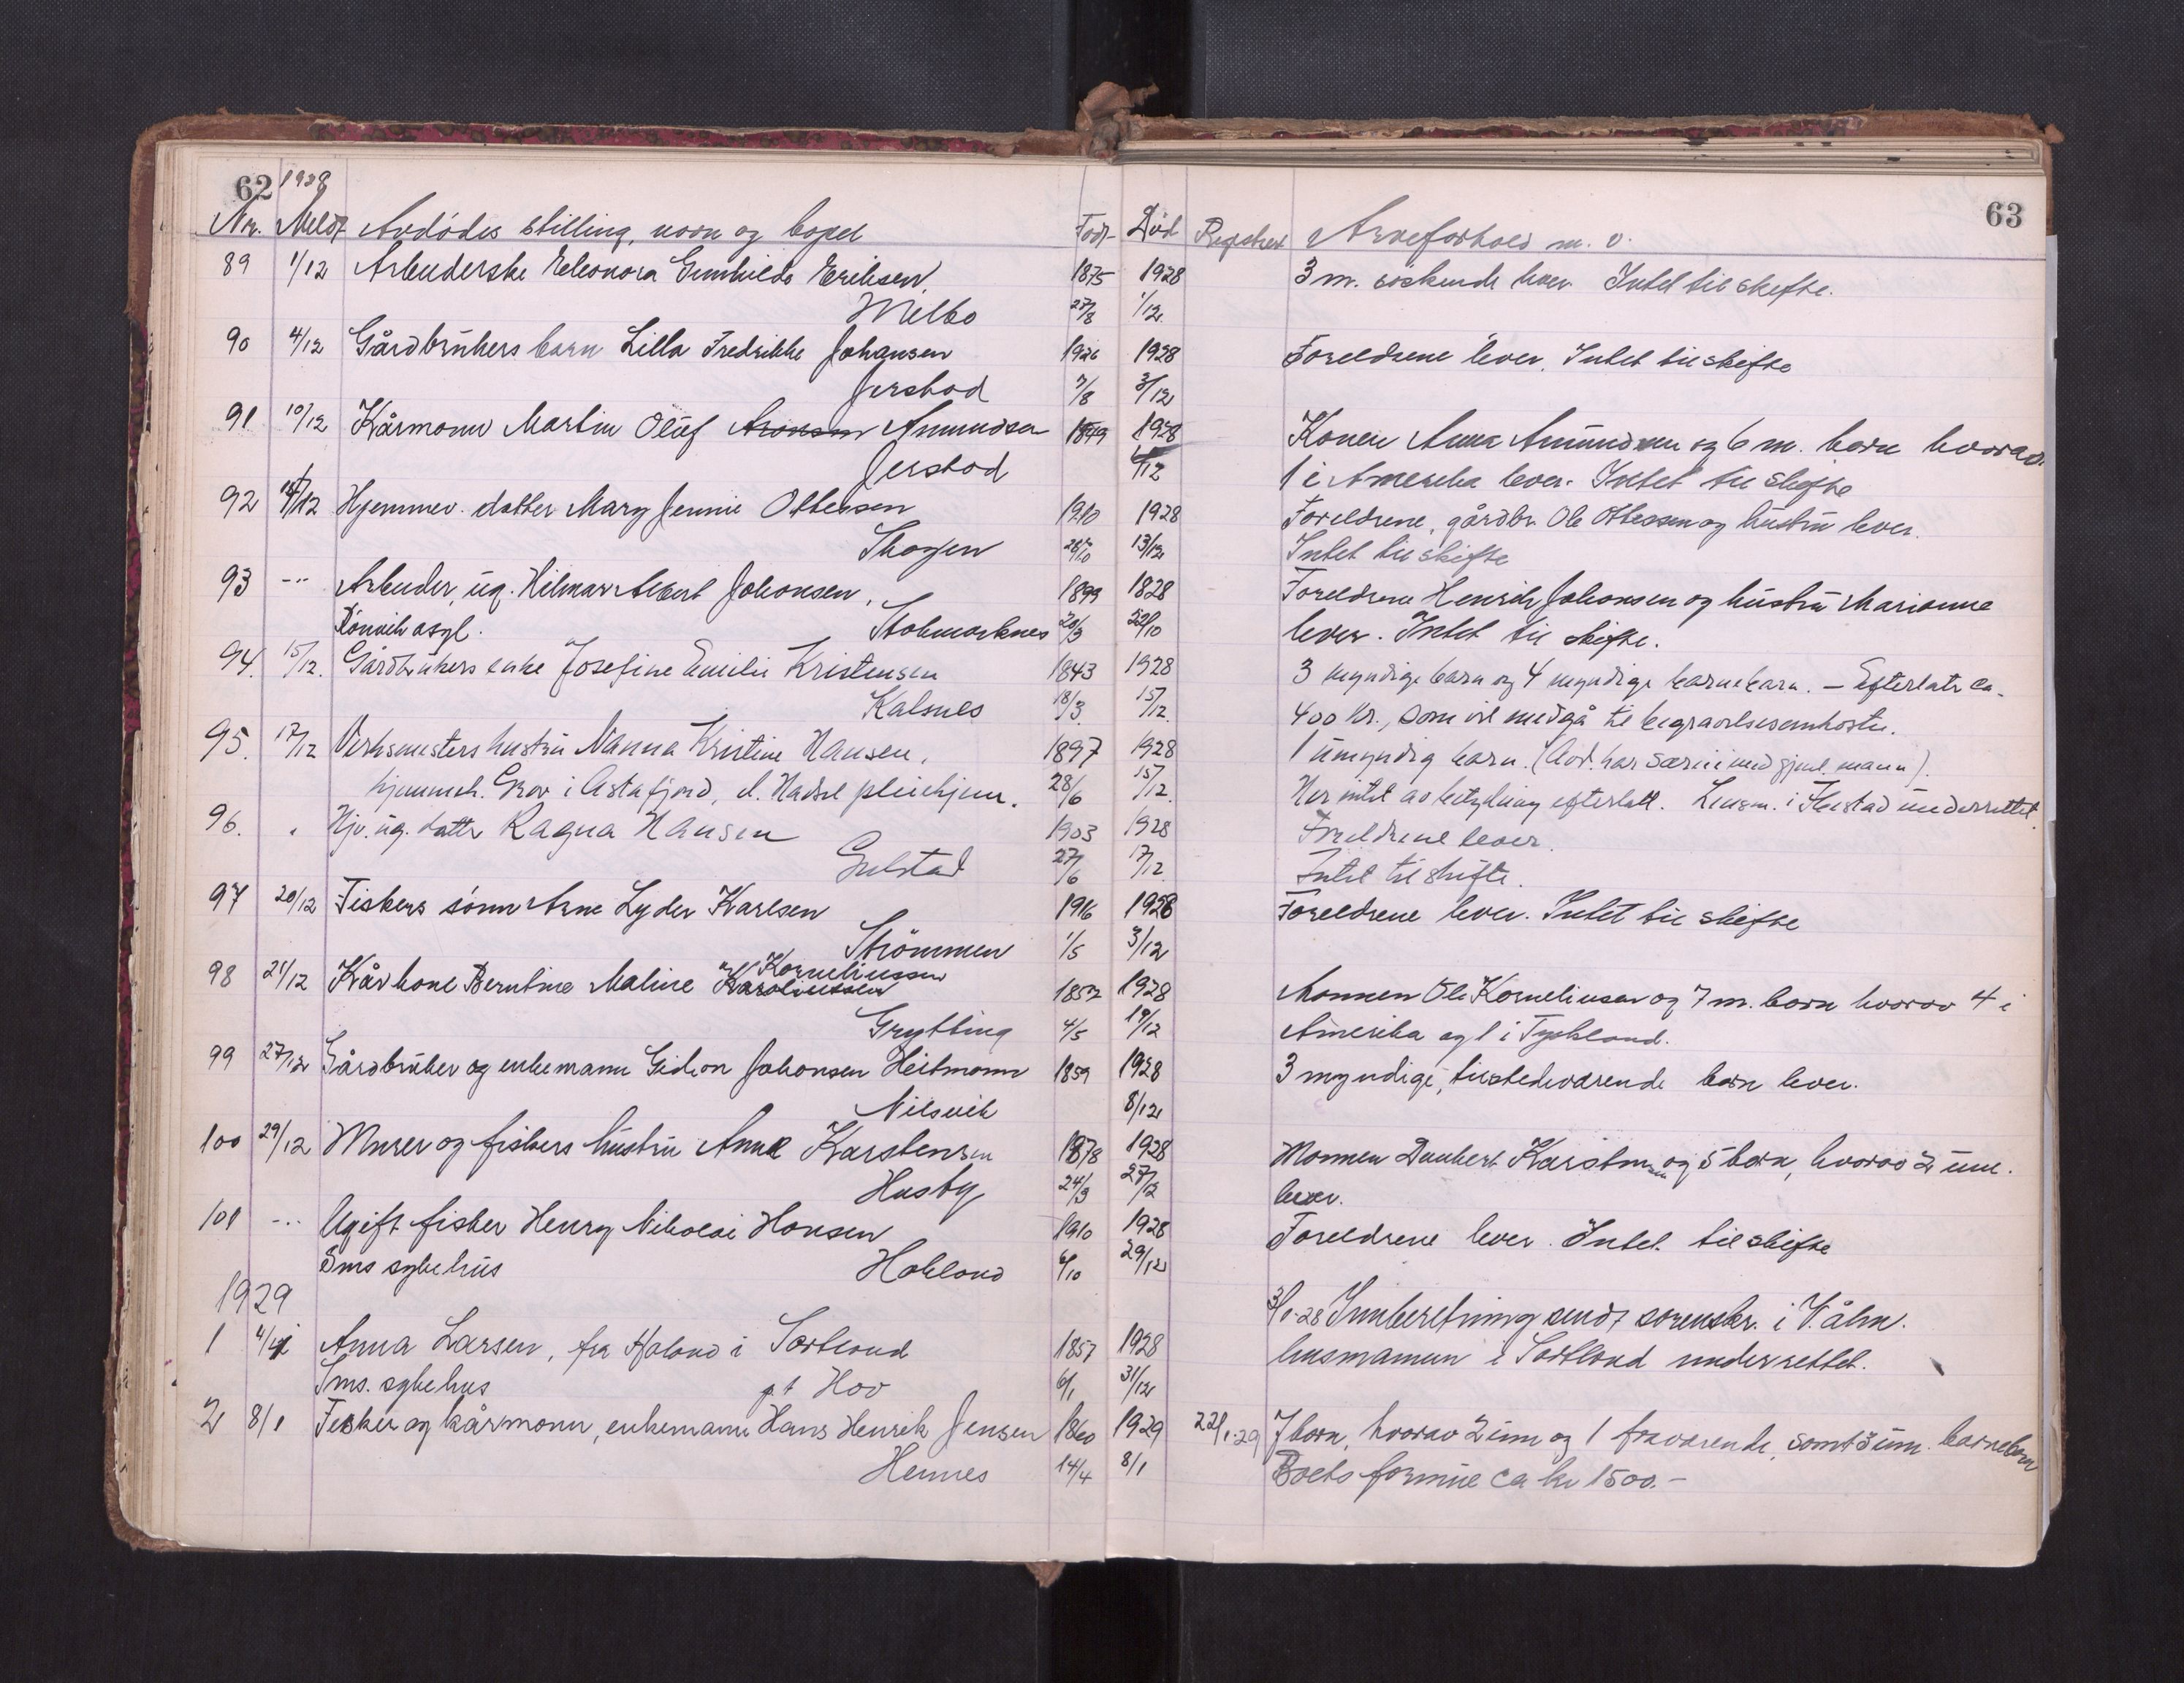 62 1928
63
Nr. Meldt Avdödes stilling, navn og bopel Född Död Registrert Arveforhold m. v.
89 1/12 Arbeiderske Eleonora Gunhilda Eriksen, 1875 1928 3 m. söskende lever. Intet til skifte.
Melbo 27/8 1/12
90 4/12 Gårdbrukers barn Lilla Fredrikke Johansen 1926 1928 Foreldrene lever. Intet til skifte
Jerstad 7/8 3/12
91 10/12 Kårmann Martin Oluf Aronsen Amundsen 1849 1928 Konen Anna Amundsen og 6 m. barn hvorav
Jerstad /12 1 i Amerika lever. Intet til skifte
92 14/12 Hjemmev. datter Mary Jennie Ottesen 1910 1928 Foreldrene, gårdbr. Ole Ottessen og hustru lever.
Skagen 28/10 13/12 Intet til skifte
93 -"- Arbeider, ug. Hilmar Albert Johansen, 1899 1828 Foreldrene Henrik Johansen og hustru Marianne
Rönvik asyl. Stokmarknes 20/3 22/10 lever. Intet til skifte.
94. 15/12. Gårdbrukers enke Josefine Emilie Kristensen 1843 1928 3 myndige barn og 4 myndige barnebarn. – Efterlatt ca.
Kalsnes 18/3 15/12. 400 kr., som vil medgå til begravelsesomkostn.
95. 17/12 Verksmesters hustru Nanna Kristine Hansen, 1897 1928 1 umyndig barn. (Avd. har særeie med gjenl. mann).
hjemmeh. Grov i Astafjord, d. Hadsel pleiehjem. 28/6 15/12. Her intet av betydning efterlatt. Lensm. i Ibestad underrettet.
96. " Hjv. ug. datter Ragna Hansen 1903 1928 Foreldrene lever.
Gulstad 27/6 17/12. Intet til skifte.
97 20/12 Fiskers sönn Arne Lyder Karlsen 1916 1928 Foreldrene lever. Intet til skifte
Strömmen 1/5 3/12
Korneliussen
98 21/12 Kårkone Berntine Maline Karoliussen 1852 1928 Mannen Ole Korneliusen og 7 m. barn hvorav 4 i
Grytting 4/5 19/12 Amerika og 1 i Tyskland.
99 27/12 Gårdbruker og enkemann Gideon Johansen Heitmann 1859 1928 3 myndige, tilstedeværende barn lever.
Nilsvik 8/12
100 29/12 Murer og fiskers hustru Anna Karstensen 1878 1928 Mannen Danbert Karstensen og 5 barn, hvorav 2 um.
Husby 24/3 27/12 lever.
101 -"- Ugift fisker Henry Nikolai Hansen 1910 1928 Foreldrene lever. Intet til skifte
Sms sykehus Hokland 6/10 29/12
1929
3/1-28 Innberetning sendt sorenskr. i V.ålen.
1 4/1 Anna Larsen, fra Holand i Sortland 1857 1928 lensmannen i Sortland underrettet.
Sms. sykehus p.t Hov 6/1 31/12
2 8/1 Fisker og kårmann, enkemann Hans Henrik Jensen 1860 1929 22/1-29 7 barn, hvorav 2 um og 1 fraværende, samt 3 um. barnebarn
Hennes 14/4 8/1 Boets formue ca kr 1500.-